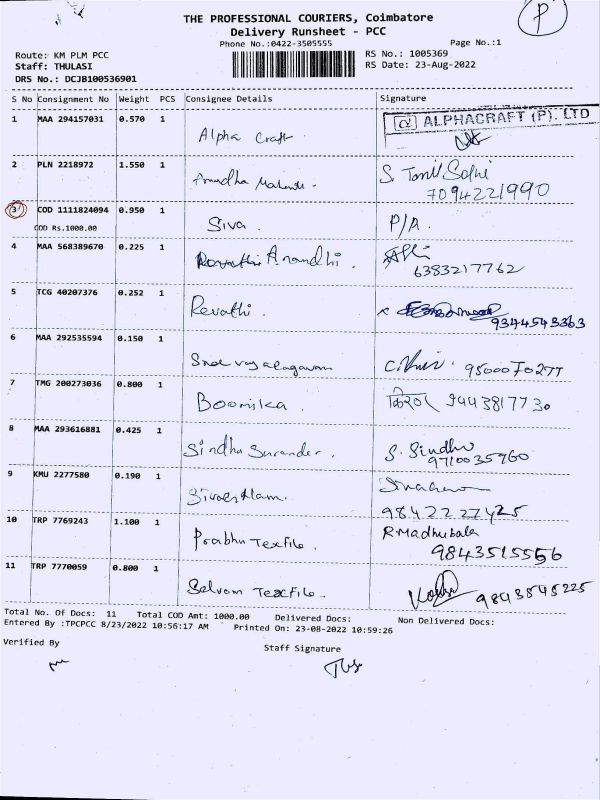 P
THE PROFESSIONAL COURIERS, Coimbatore
Delivery Runsheet - PCC
Phone No.:0422-3505555
Page No.:1
Route: KM PLM PCC
RS No.: 1005369
Staff: THULASI
RS Date: 23-Aug-2022
DRS No.: DCJB100536901
S No Consignment No Weight PCS Consignee Details Signature
1 MAA 294157031 0.570 1 Alpha Craft ALPHACRAFT (P). LTD
2 PLN 2218972 1.550 1 S. Tamil Selvi
7094221990
3 COD 1111824094 0.950 1 Siva. P/A.
COD Rs.1000.00
4 MAA 568389670 0.225 1 Revathi Anandhi.
6383217762
5 TCG 40207376 0.252 1 Revathi. x
9344543363
6 MAA 292535594 0.150 1 95000 70277
7 TMG 200273036 0.800 1 Boomika. किरण 9443817730
8 MAA 293616881 0.425 1 Sindhu Surender. S. Sindhu
9710035760
9 KMU 2277580 0.190 1
9842227425
10 TRP 7769243 1.100 1 Prabhu Texfile. R.Madhubala
9843515556
11 TRP 7770059 0.800 1 Selvam Texfile. 9843545225
Total No. Of Docs: 11 Total COD Amt: 1000.00 Delivered Docs: Non Delivered Docs:
Entered By :TPCPCC 8/23/2022 10:56:17 AM Printed On: 23-08-2022 10:59:26
Verified By
Staff Signature